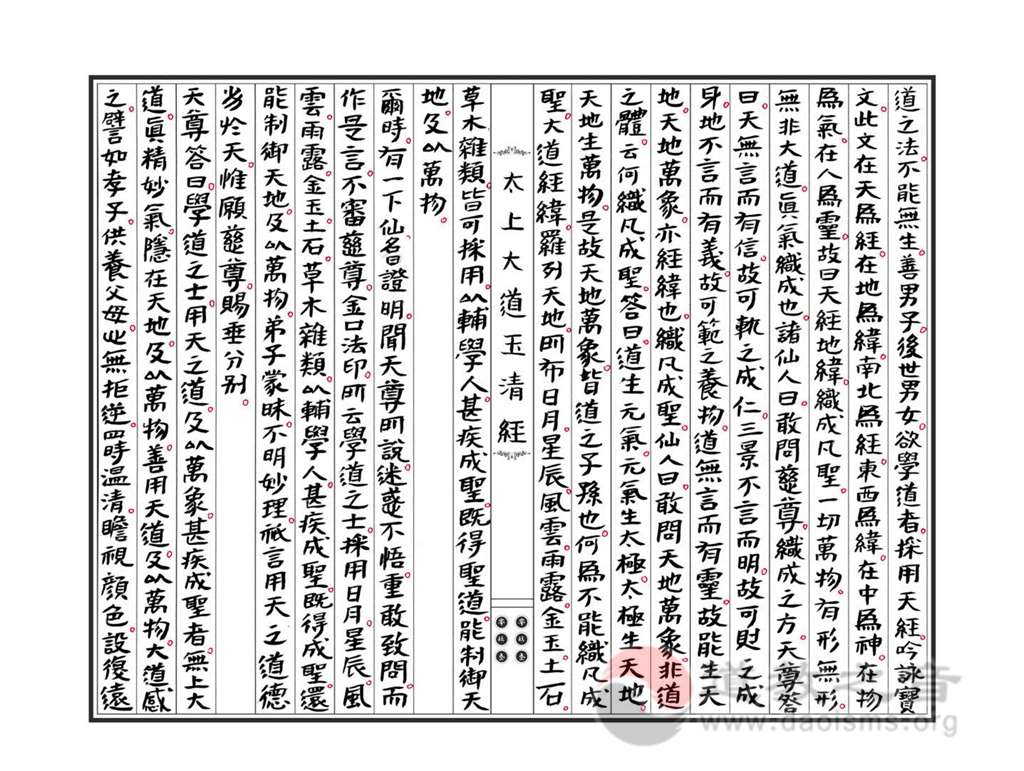 道之法。不能無生。善男子。後世男女。欲學道者。採用天經。吟詠寶
文。此文在天爲經。在地爲緯。南北爲經。東西爲緯。在中爲神。在物
爲氣。在人爲靈。故曰天經地緯。織成凡聖。一切萬物。有形無形。
無非大道。眞氣織成也。諸仙人曰。敢問慈尊。織成之方。天尊答
曰。天無言而有信。故可軌之成仁。三景不言而明。故可則之成
身。地不言而有義。故可範之養物。道無言而有靈。故能生天
地。天地萬象。亦經緯也。織凡成聖。仙人曰。敢問天地萬象。非道
之體。云何織凡成聖。答曰。道生元氣。元氣生太極。太極生天地。
天地生萬物。是故天地萬象。皆道之子孫也。何爲不能織凡成
聖。大道經緯。羅列天地。所布日月。星辰。風雲。雨露。金玉土石。
太上大道玉清經
草木雜類。皆可採用。以輔學人。甚疾成聖。既得聖道。能制御天
地。及以萬物。
爾時。有一下仙。名曰證明。聞天尊所說。迷惑不悟。重敢致問。而
作是言。不審慈尊。金口法印。所云學道之士。採用日月。星辰。風
雲。雨露。金玉。土石。草木雜類。以輔學人。甚疾成聖。既得成聖。還
能制御天地。及以萬物。弟子蒙昧。不明妙理。祇言用天之道。德
步於天。惟願慈尊。賜垂分别。
天尊答曰。學道之士。用天之道。及以萬象。甚疾成聖者。無上大
道。眞精妙氣。隱在天地。及以萬物。善用天道。及以萬物。大道感
之。譬如孝子。供養父母。心無拒逆。四時温清。瞻視顔色。設復遠
道教之音
www.daoisms.org